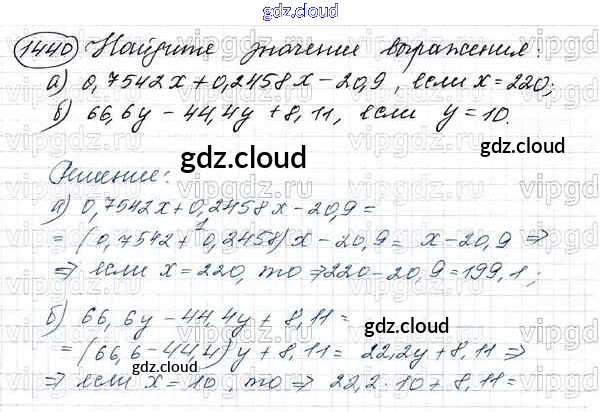 gdz.cloud
1440 Найдите значение выражения:
а) 0,7542x + 0,2458x - 20,9, если x = 220;
б) 66,6y - 44,4y + 8,11, если y = 10.
gdz.cloud
gdz.cloud
Решение:
а) 0,7542x + 0,2458x - 20,9 =
1
= (0,7542 + 0,2458)x - 20,9 = x - 20,9 ⇒
⇒ если x = 220, то ⇒ 220 - 20,9 = 199,1;
б) 66,6y - 44,4y + 8,11 =
gdz.cloud
= (66,6 - 44,4)y + 8,11 = 22,2y + 8,11 ⇒
gdz.cloud
gdz.cloud
⇒ если x = 10, то ⇒ 22,2 · 10 + 8,11 =